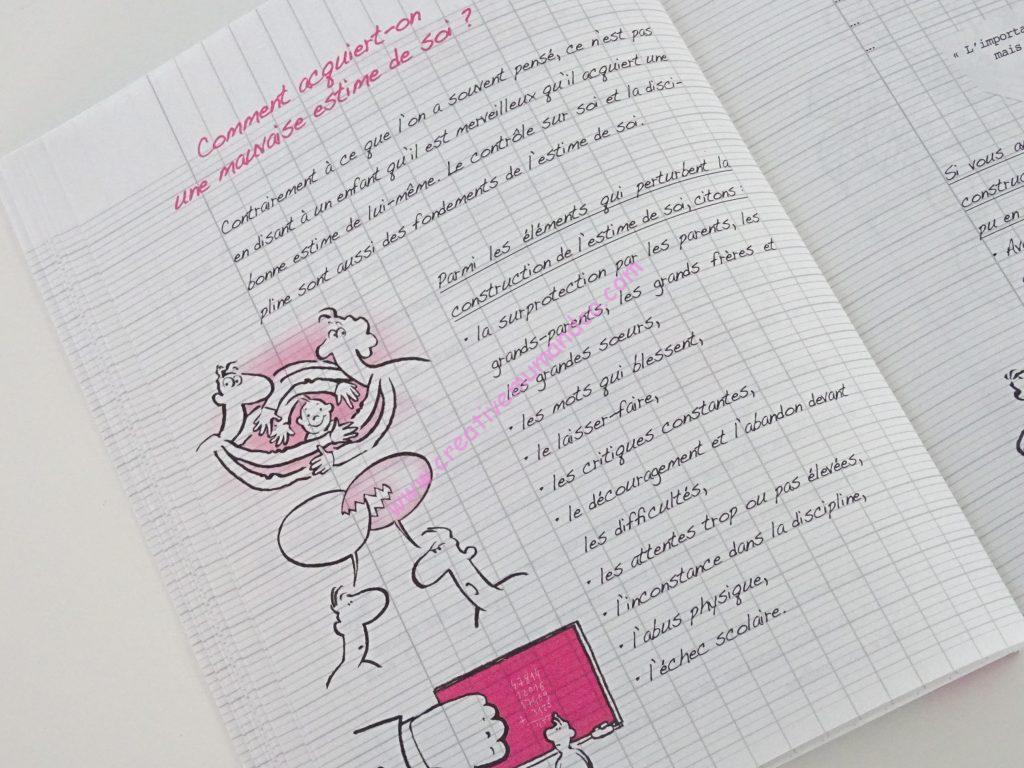 Comment acquiert-on
une mauvaise estime de soi ?
Contrairement à ce que l'on a souvent pensé, ce n'est pas
en disant à un enfant qu'il est merveilleux qu'il acquiert une
bonne estime de lui-même. Le contrôle sur soi et la disci-
pline sont aussi des fondements de l'estime de soi.
Parmi les éléments qui perturbent la
construction de l'estime de soi, citons :
• la surprotection par les parents, les
grands-parents, les grands frères et
les grandes sœurs,
• les mots qui blessent,
• le laisser-faire,
• les critiques constantes,
• le découragement et l'abandon devant
les difficultés,
• les attentes trop ou pas élevées,
• l'inconstance dans la discipline,
• l'abus physique,
• l'échec scolaire.
...
...
« L'importa
mais
Si vous a
constru
pu en
• Av